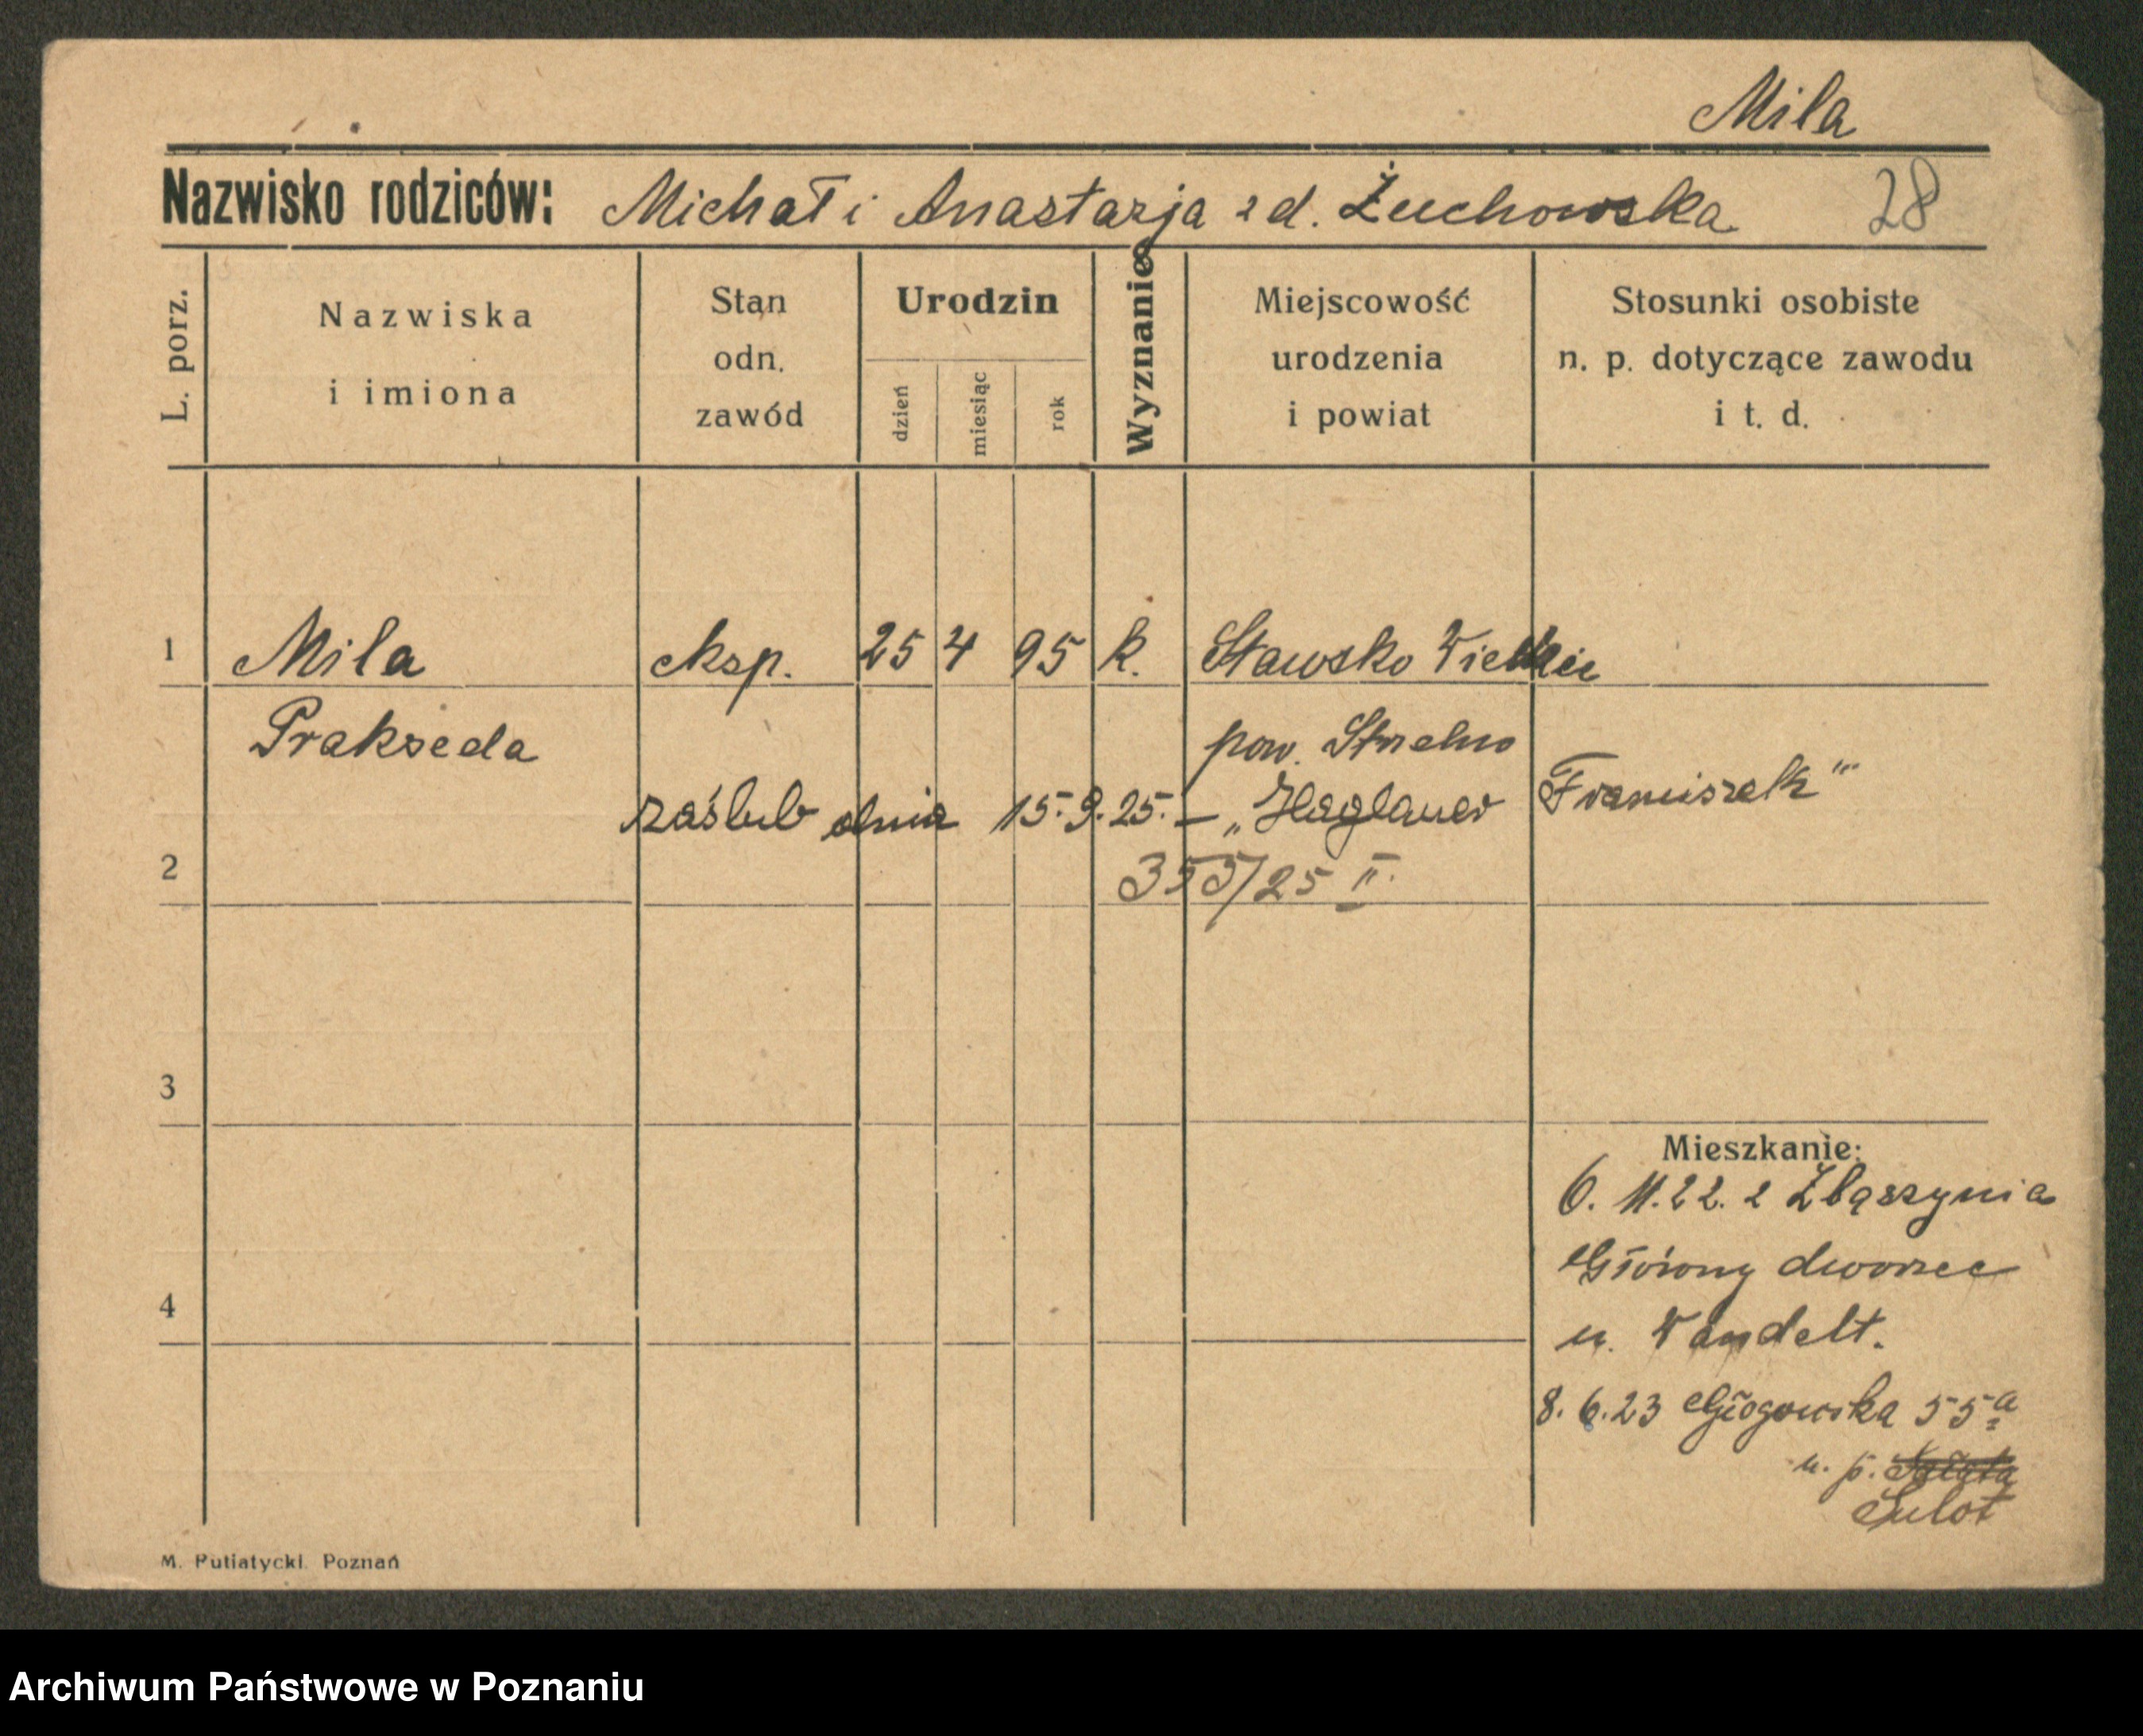 Mila
Nazwisko rodziców: Michał i Anastazja z d. Żuchowska 28
L. porz.
Nazwiska
i imiona
Stan
odn.
zawód
Urodzin
dzień
miesiąc
rok
Wyznanie
Miejscowość
urodzenia
i powiat
Stosunki osobiste
n. p. dotyczące zawodu
i t. d.
1 Mila eksp. 25 4 95 k. Stawsko Wielkie
Prakseda pow. Strelno
zaślub dnia 15.9.25. – „Haglauer Franciszek"
2 353/25 II.
3
Mieszkanie:
6. 11.22. z Zbąszynia
Główny dworzec
4
u. Wandelt.
8. 6.23 Głogowska 55a
u. p.
Sulot
M. Putiatycki. Poznań
Archiwum Państwowe w Poznaniu